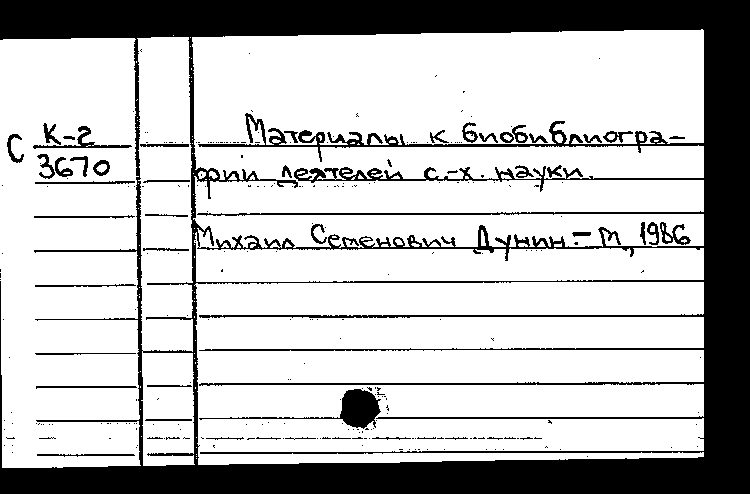 С К-2
3670
Материалы к биобиблиогра-
фии деятелей с.-х. науки.
Михаил Семенович Дунин. - М., 1986.